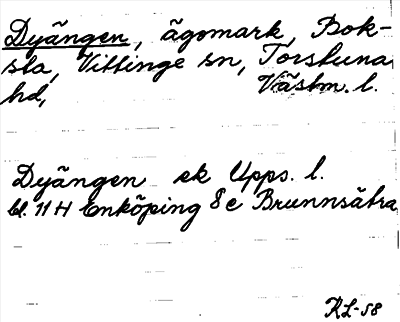 Dyängen, ägomark, Bok-
sta, Vittinge sn, Torstuna
hd, Västm. l.
Dyängen ek Upps. l.
bl. 11 H Enköping 8 e Brunnsätra
KL-58